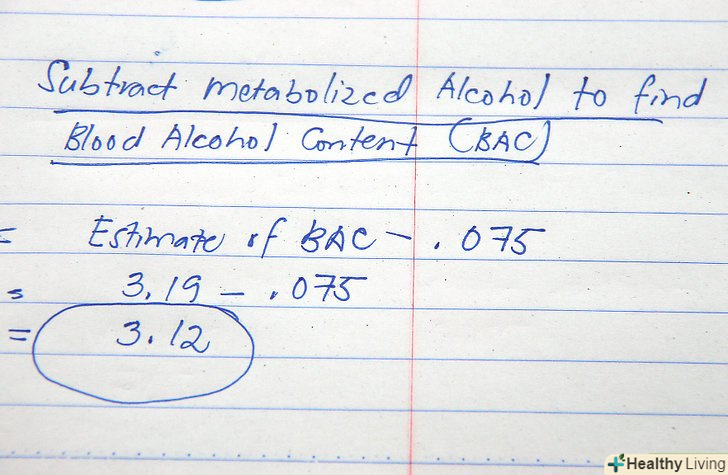 Subtract metabolized Alcohol to find
Blood Alcohol Content (BAC)
= Estimate of BAC - .075
= 3.19 - .075
= 3.12
Healthy Living